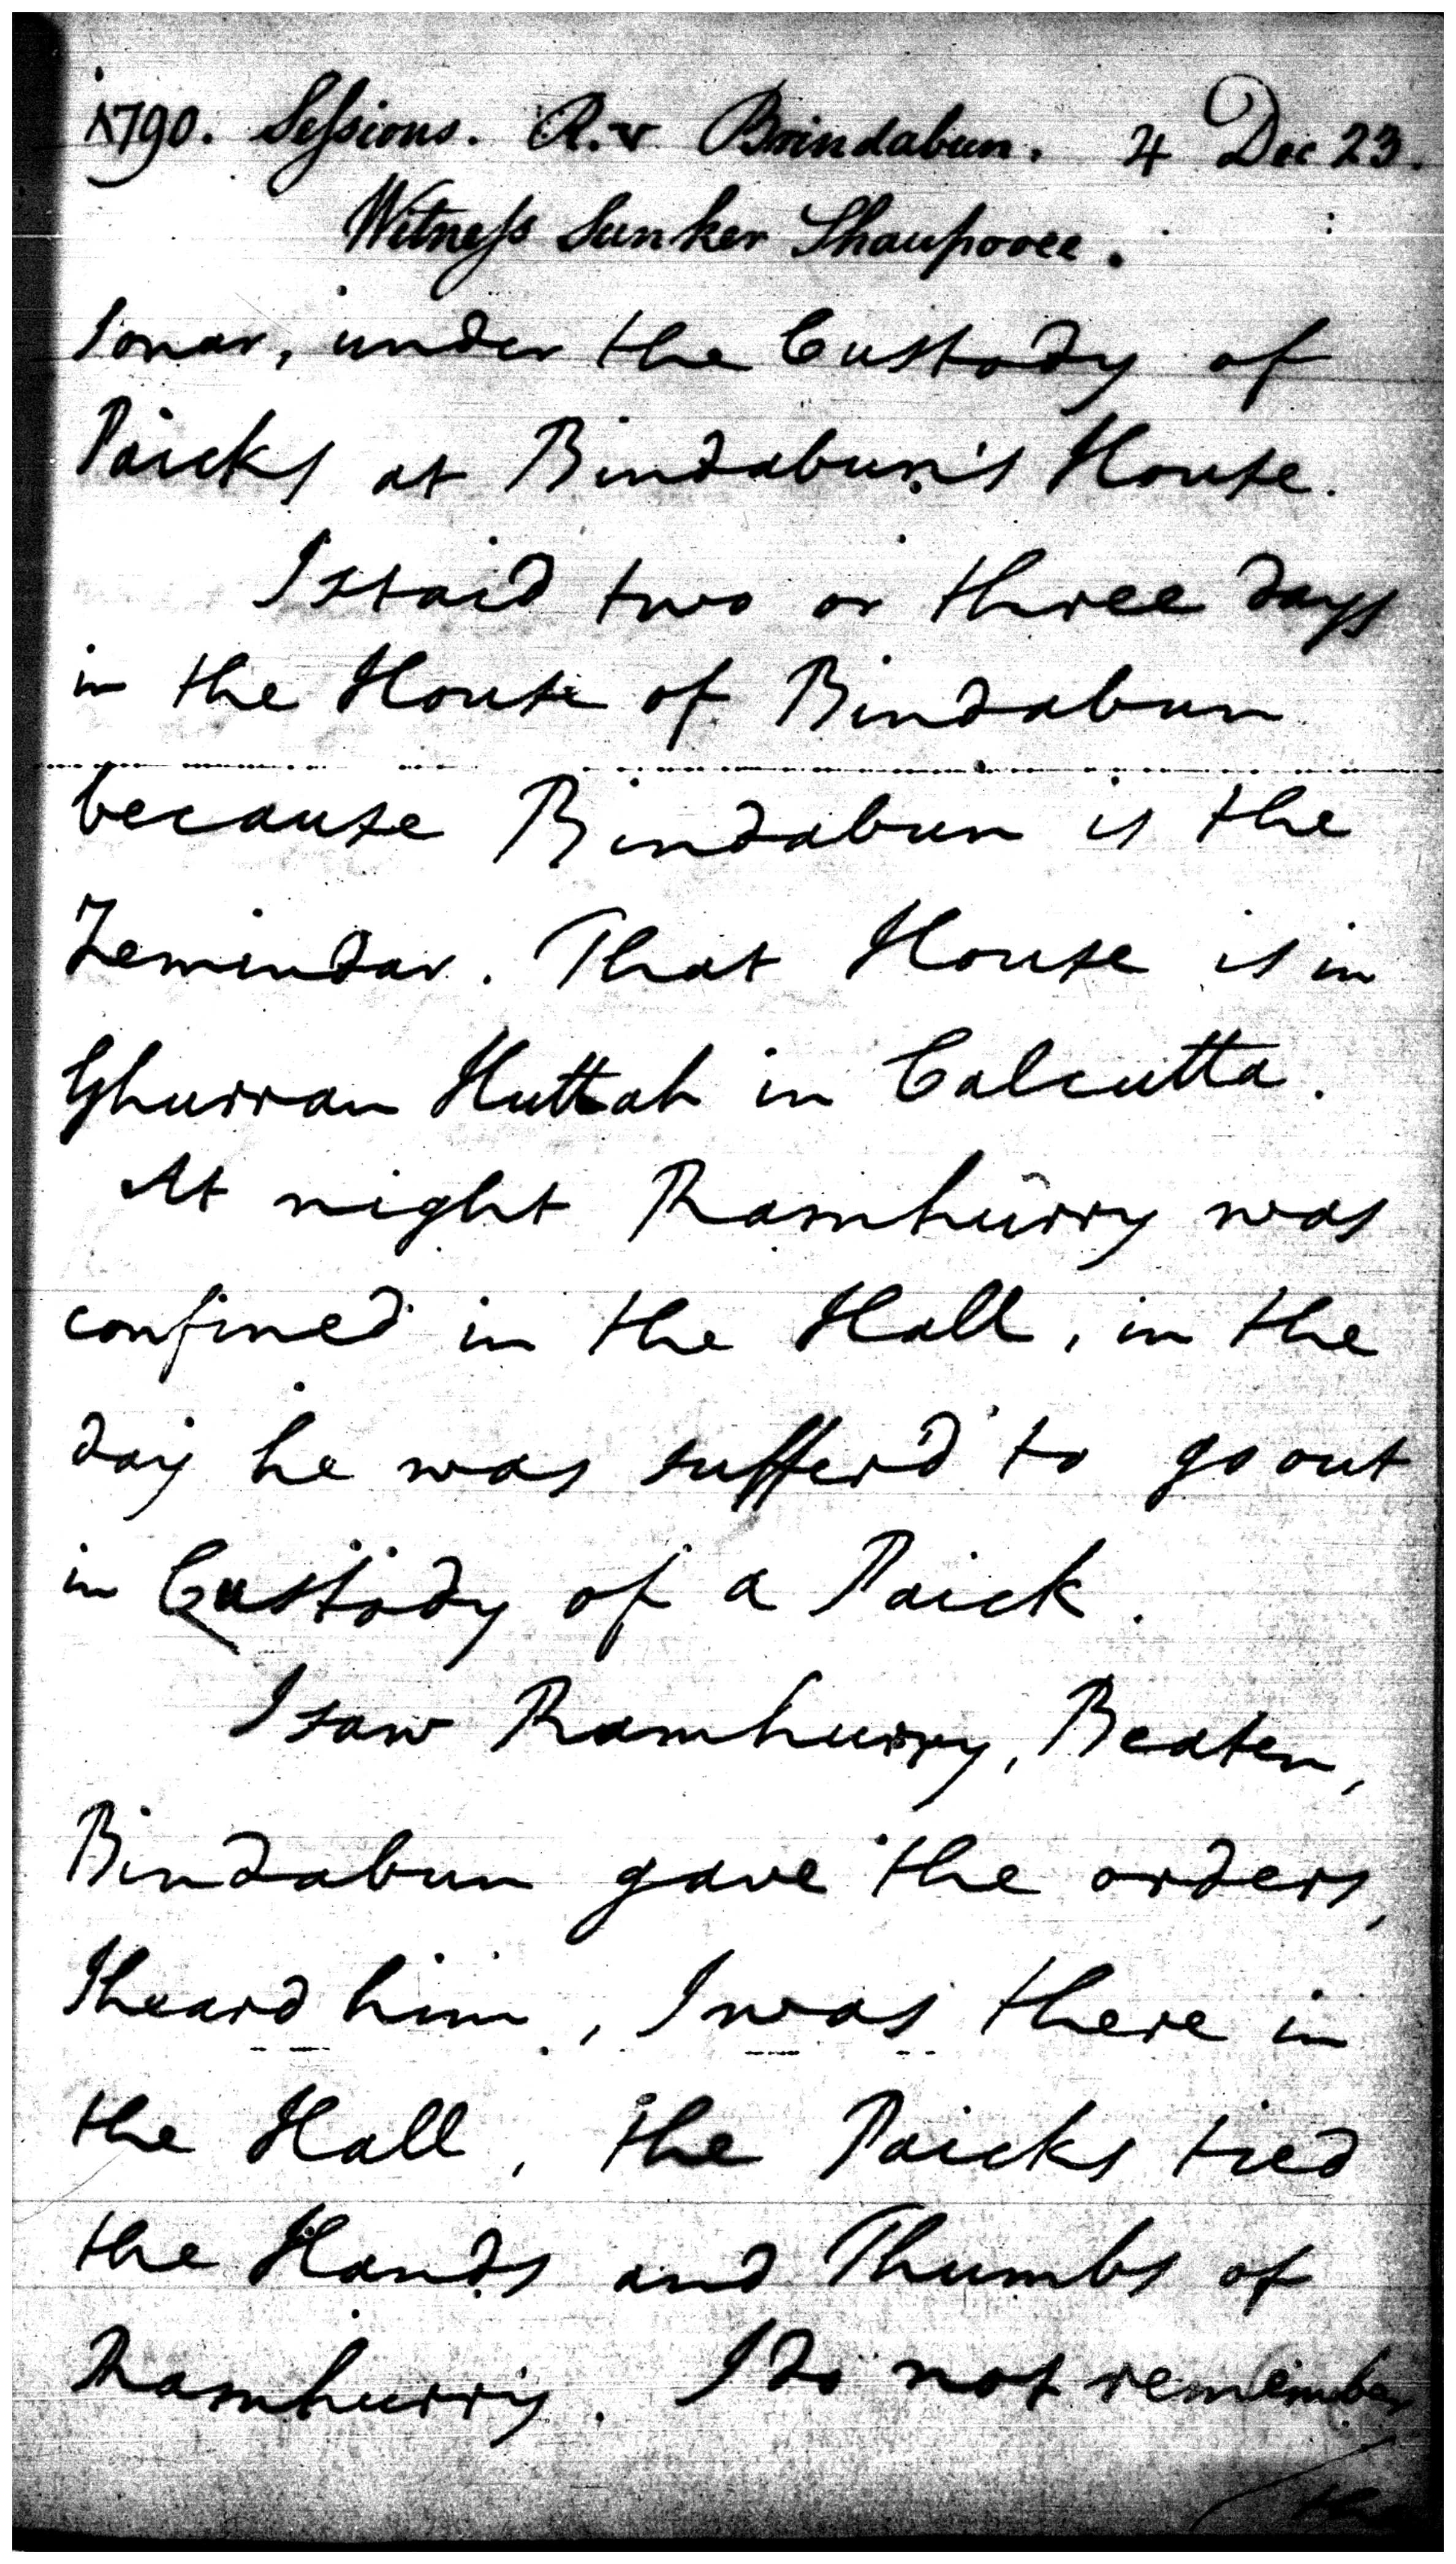 1790. Sessions. R. v Brindabun. 4 Dec 23.
Witness Sunker Shaupooree.
Sonar, under the Custody of
Paicks at Bindabun's House.
I staid two or three days
in the House of Bindabun
because Bindabun is the
Zemindar. That House is in
Ghurran Huttah in Calcutta.
At night Ramhurry was
confined in the Hall, in the
day he was sufferd to go out
in Custody of a Paick.
I saw Ramhurry, Beaten,
Bindabun gave the orders,
I heard him, I was there in
the Hall, the Paicks tied
the Hands and Thumbs of
Ramhurry. I do not remember
the